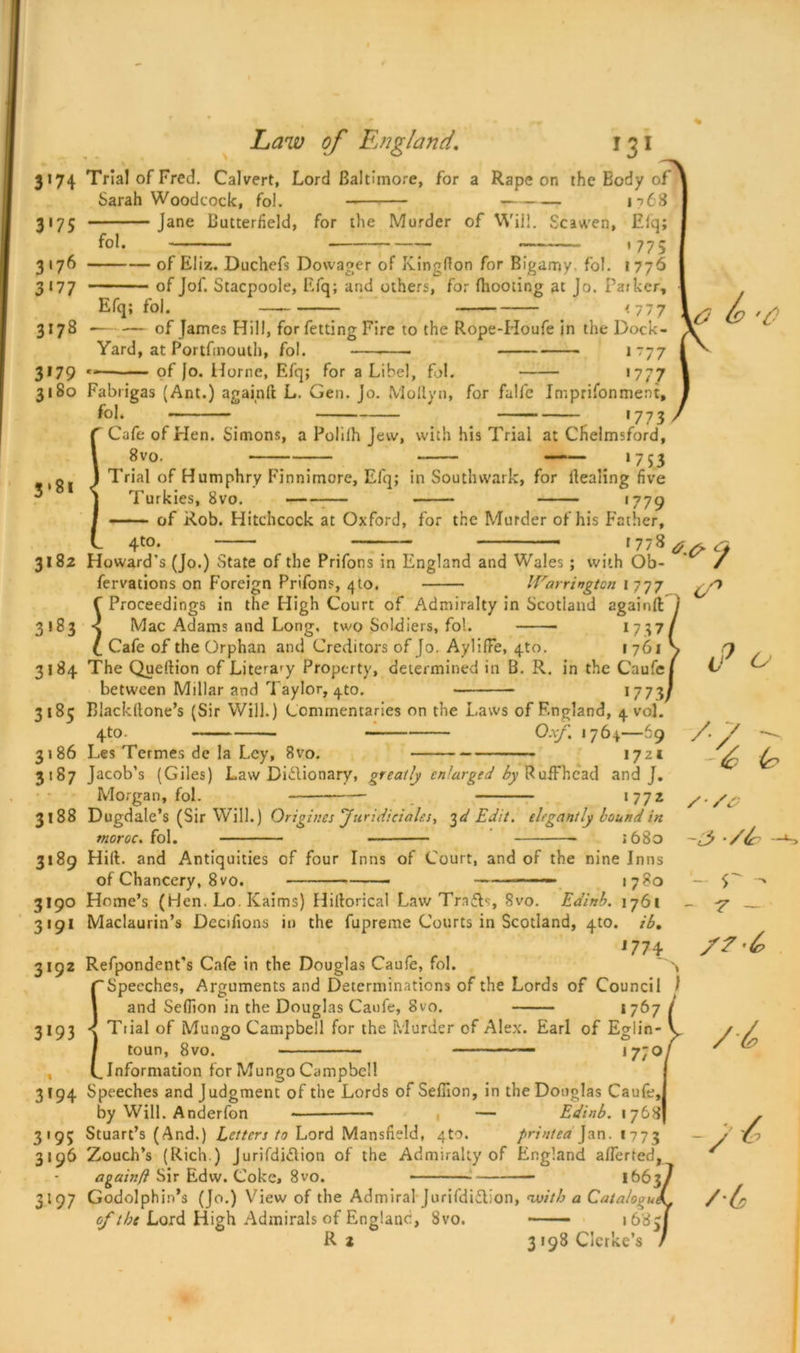 Law of England. 131
3174 Trial of Fred. Calvert, Lord Baltimore, for a Rape on the Body of
Sarah Woodcock, fol. —— —— 1768
3175 —— Jane Butterfield, for the Murder of Will. Scawen, Eſq;
fol. —— —— —— 1775
3176 —— of Eliz. Ducheſs Dowager of Kingſton for Bigamy. fol. 1776
3177 —— of Joſ. Stacpoole, Eſq; and others, for ſhooting at Jo. Parker,
Eſq; fol. —— —— 1777
3178 —— of James Hill, for ſetting Fire to the Rope-Houſe in the Dock-
Yard, at Portſmouth, fol. —— —— 1777
3179 —— of Jo. Horne, Eſq; for a Libel, fol. —— 1777
3180 Fabrigas (Ant.) againſt L. Gen. Jo. Moſtyn, for falſe Impriſonment,
fol. —— —— —— 1773
Caſe of Hen. Simons, a Poliſh Jew, with his Trial at Chelmsford,
8vo. —— —— —— 1753
3181 Trial of Humphry Finnimore, Eſq; in Southwark, for ſtealing five
Turkies, 8vo. —— —— —— 1779
—— of Rob. Hitchcock at Oxford, for the Murder of his Father,
4to. —— —— —— 1778
3182 Howard's (Jo.) State of the Priſons in England and Wales; with Ob-
ſervations on Foreign Priſons, 4to. —— Warrington 1777
Proceedings in the High Court of Admiralty in Scotland againſt
3183 Mac Adams and Long, two Soldiers, fol. —— 1737
Caſe of the Orphan and Creditors of Jo. Ayliffe, 4to. 1761
3184 The Queſtion of Literary Property, determined in B. R. in the Cauſe
between Millar and Taylor, 4to. —— 1773
3185 Blackſtone's (Sir Will.) Commentaries on the Laws of England, 4 vol.
4to. —— —— Oxf. 1764—69
3186 Les Termes de la Ley, 8vo. —— 1721
3187 Jacob's (Giles) Law Dictionary, greatly enlarged by Ruffhead and J.
Morgan, fol. —— —— 1772
3188 Dugdale's (Sir Will.) Origines Juridiciales, 3d Edit. elegantly bound in
moroc. fol. —— —— —— 1680
3189 Hiſt. and Antiquities of four Inns of Court, and of the nine Inns
of Chancery, 8vo. —— —— 1780
3190 Home's (Hen. Lo. Kaims) Hiſtorical Law Tracts, 8vo. Edinb. 1761
3191 Maclaurin's Deciſions in the ſupreme Courts in Scotland, 4to. ib.
1774
3192 Reſpondent's Caſe in the Douglas Cauſe, fol.
Speeches, Arguments and Determinations of the Lords of Council
and Seſſion in the Douglas Cauſe, 8vo. —— 1767
3193 Trial of Mungo Campbell for the Murder of Alex. Earl of Eglin-
toun, 8vo. —— —— 1770
Information for Mungo Campbell
3194 Speeches and Judgment of the Lords of Seſſion, in the Douglas Cauſe,
by Will. Anderſon —— — Edinb. 1768
3195 Stuart's (And.) Letters to Lord Mansfield, 4to. printed Jan. 1773
3196 Zouch's (Rich.) Juriſdiction of the Admiralty of England aſſerted,
againſt Sir Edw. Coke, 8vo. —— 1663
3197 Godolphin's (Jo.) View of the Admiral Juriſdiction, with a Catalogue
of the Lord High Admirals of England, 8vo. —— 1685
R 2 3198 Clerke's